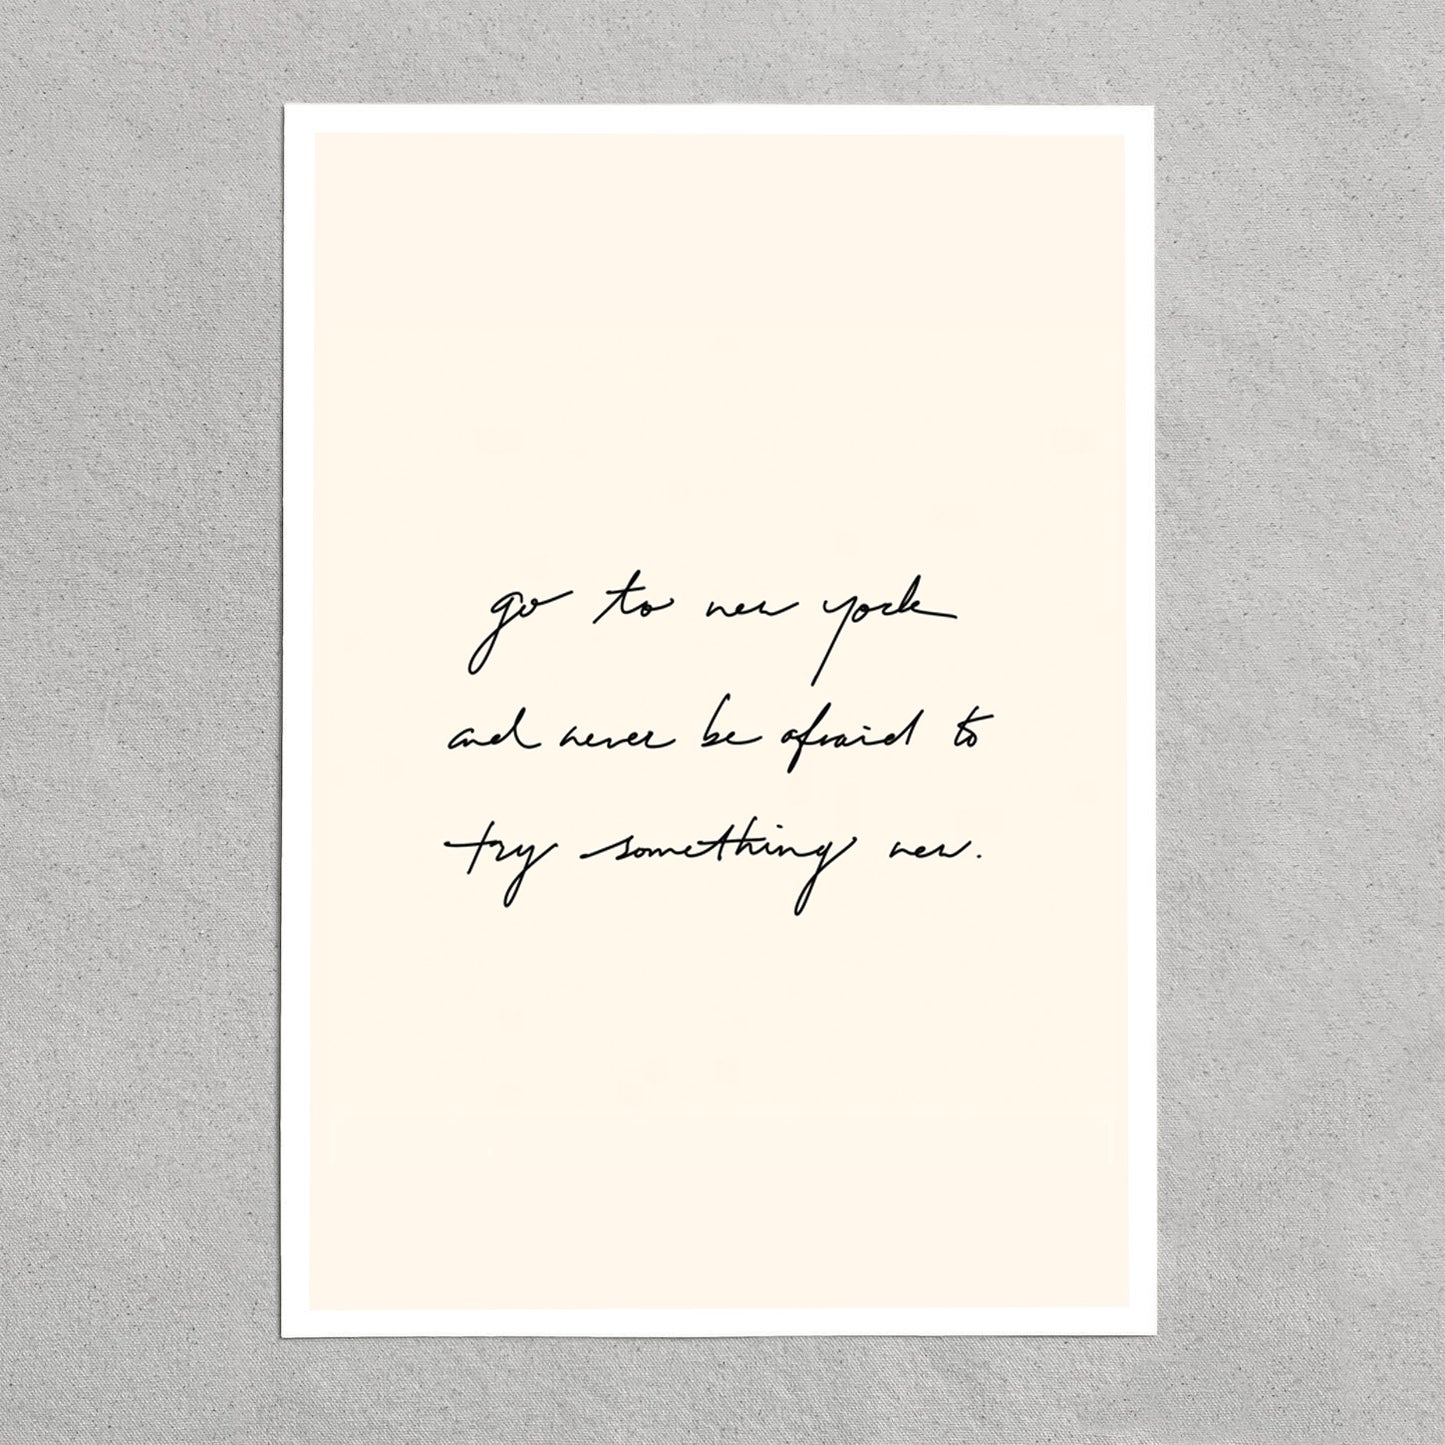 go to new york
and never be afraid to
try something new.